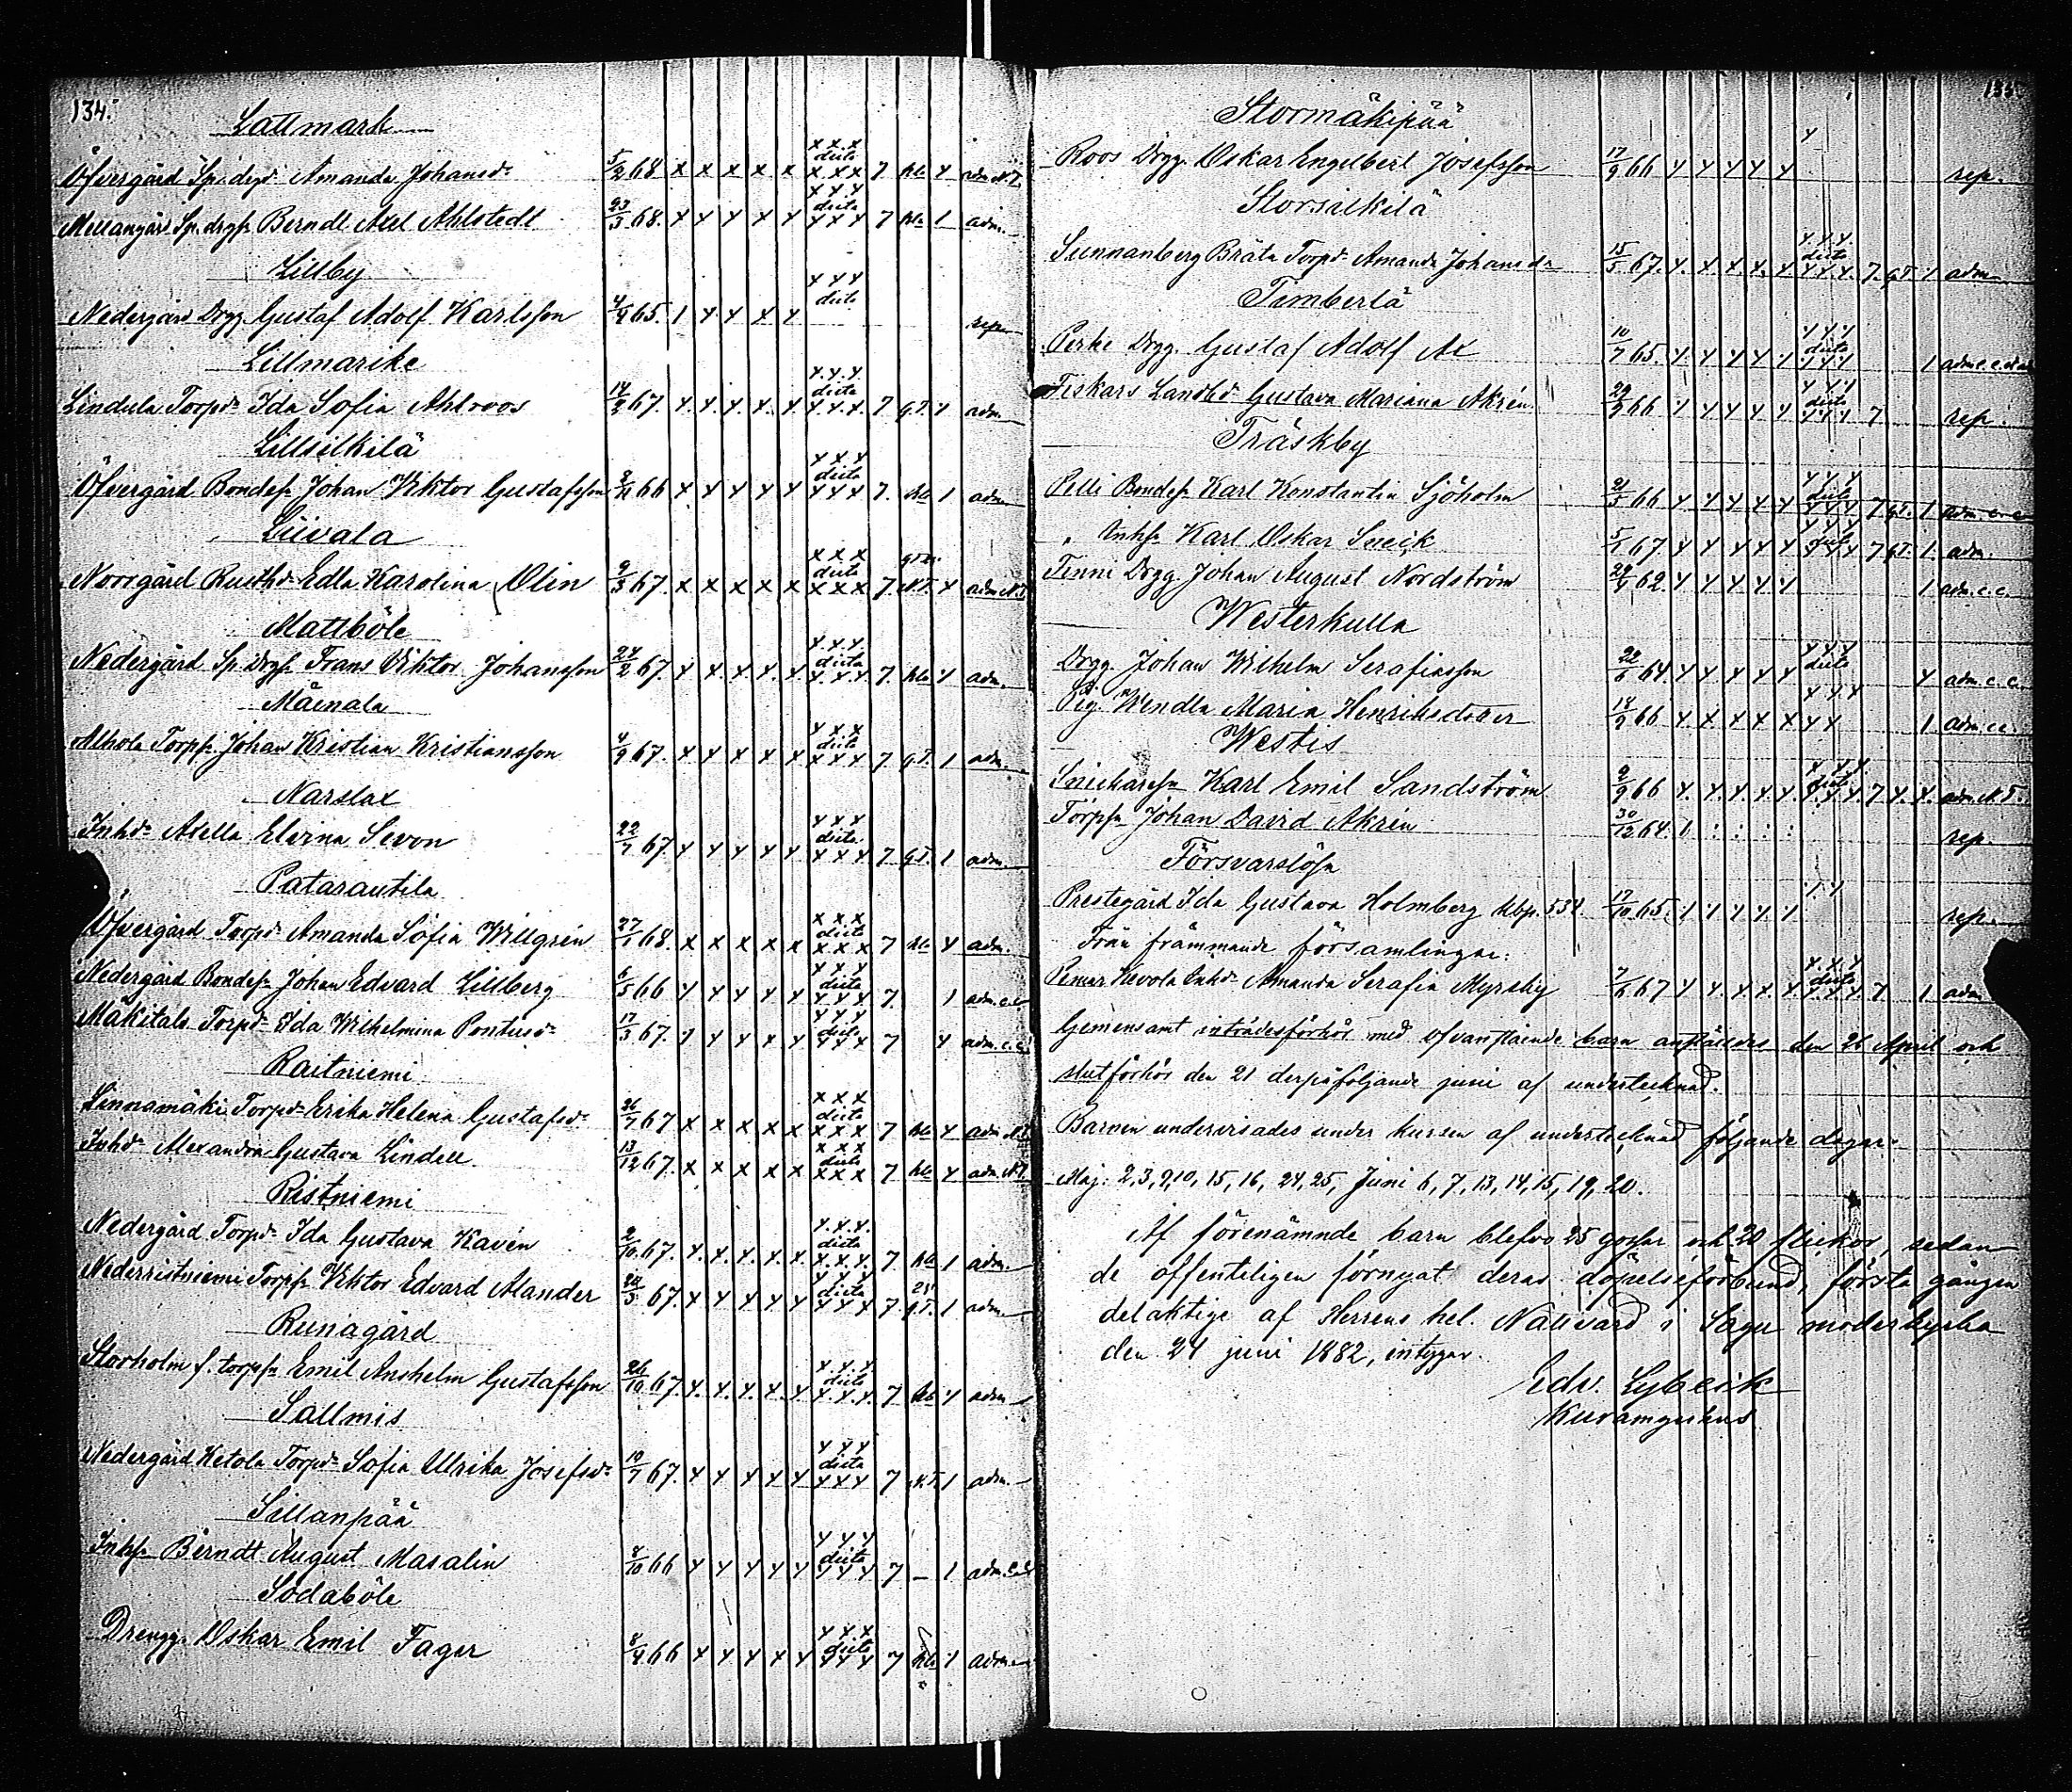 134.
Lattmark
Öfvergård Sp. drgd. Amanda Johansd. 5/2 68 x x x x x x x x dicto x x x 7 hlc y adm. N.T.
Mellangård Sp. drgs. Berndt Axel Ahlstedt 23/3 68. y y y y y y y y dicto y y y 7 hlc 1 adm.
Lillby
Nedergård Drgg. Gustaf Adolf Karlsson 4/4 65. 1 y y y y y y y dicto rep.
Lillmarike
Lindula Torpd. Ida Sofia Ahlroos 14/2 67. y. y. y. y. y. y. y. y dicto y. y. y. 7 g.T. y adm.
Lillsilkilä
Öfvergård Bondes. Johan Viktor Gustafsson 9/11 66 x y y y y x x x dicto y y y 7. hlc 1 adm
Liivala
Norrgård Rusthd. Edla Karolina Olin 9/3 67. x x x x x x x x dicto x x x 7. N.T. y adm. N.T.
Mattböle
Nedergård Sp. Drgs. Frans Viktor Johansson 24/2 67. y y. y. y. y. y. y. y dicto y. y y 7. hlc y adm.
Mäenala
Alhola Torps. Johan Kristian Kristiansson 4/9 67. x y y y y y. x. x dicto x x x 7. g.T. 1 adm.
Narslax
Inhd. Axella Elvina Sevon 22/7 67. y y y y y y y y dicto y y y 7 g.T. 1 adm.
Patarautila
Öfvergård Torpd. Amanda Sofia Willgrén 27/1 68. x x x x x x x x dicto x x x 7 hlc y adm.
Nedergård Bondes. Johan Edvard Lillberg 6/5 66 y y y y y y. y. y dicto y y y 7. 1 adm. c.c.
Mäkitalo Torpd. Ida Wilhelmina Pontusd. 17/3 67. y y y x y y y y dicto y y y 7 y adm. c.c.
Raitniemi
Linnamäki Torpd. Erika Helena Gustafsd. 26/7 67 x x x x x x x x dicto x x x 7 hlc y adm. N.T.
Inhd. Alexandra Gustava Lindell. 13/12 67. x x x x x x x x dicto x x x 7 hlc y adm. N.T.
Ristniemi
Nedergård Torpd. Ida Gustava Kavén 2/10 67. y. y. y. y. y. y. y. y. dicto y. y. y. 7 hlc 1 adm.
Nederristniemi Torps. Viktor Edvard Alander 24/5 67. y y y y y y y y dicto y y y 7 g.T. 1 adm.
Runagård
Storholm f. torps. Emil Anshelm Gustafsson 26/10 67. y. y. y. y. y y. y. y dicto y. y. y. 7 hlc y adm
Sallmis
Nedergård Ketola Torpd. Sofia Ulrika Josefsd. 10/7 67. y y y y y y y y dicto y y y 7 N.T. 1 adm.
Sillanpää
Inhs. Berndt August Masalin 8/10 66 y y y y y y y y dicto y y y 7 – 1 adm. c.c.
Sodaböle
Drengg. Oskar Emil Fager 8/4 66 y y y y y y y x dicto y y y 7 hlc 1 adm.
Stormäkipää
Roos Drgg. Oskar Engelbert Josefsson 17/9 66 y y y y y y rep.
Storsilkilä
Sunnanberg Bråta Torpd. Amanda Johansd. 15/5 67. y. x x y. y y. y. y. dicto y. y. y. 7. g.T. 1 adm
Timberlä
Perke Drgg. Gustaf Adolf Al 10/7 65. y. y y y y y y y dicto y y y 1 adm. c.c.
Fiskars Landbd. Gustava Mariana Akrén. 29/9 66 y y y y y y y y dicto y y y 7 rep.
Träskby
Pelli Bondes. Karl Konstantin Sjöholm 21/5 66 y y y y y y y y dicto y y y 7 g.T. 1 adm. c.c.
" Inhs. Karl Oskar Sneck 5/1 67 y y y y y y y y dicto y y y 7 g.T. 1 adm.
Finni Drgg. Johan August Nordström 29/4 62. y y y y y 1 adm. c.c.
Westerkulla
Drgg. Johan Wilhelm Serafinsson 22/6 64. y y y y y y y y dicto y adm. c.c.
Pig. Wendla Maria Henriksdotter 18/9 66 y x x x x y y y y y 1 adm. c.c.
Westis
Snickares. Karl Emil Sandström 2/9 66 y. y. y. y. y y y y dicto y. y. y. 7 y. y. adm. N.T.
Torps. Johan David Akrén 30/12 64. 1 : : : : rep.
Försvarslösa
Prestegård Ida Gustava Holmberg kbp. 534. 17/10 65. 1 y y y. y y y rep.
Från främmande församlingar:
Pemar Kevola Inhd. Amanda Serafia Myrsky 7/6 67 y y. y x y y. y. y dicto y. y. y. 7 1 adm
Gemensamt inträdesförhör med ofvanstående barn anställdes den 26 April och
slutförhör den 21 derpåföljande juni af undertecknad.
Barnen undervisades under kursen af undertecknad följande dagar:
Maj. 2, 3, 9, 10, 15, 16, 24, 25, Juni 6, 7, 13, 14, 15, 19, 20.
Af förenämnde barn blefvo 25 gossar och 20 flickor, sedan
de offentligen förnyat deras döpelseförbund, första gången
delaktige af Herrens hel. Nattvard i Sagu moderkyrka
den 24 juni 1882, intygar.
Edv. Lybeck